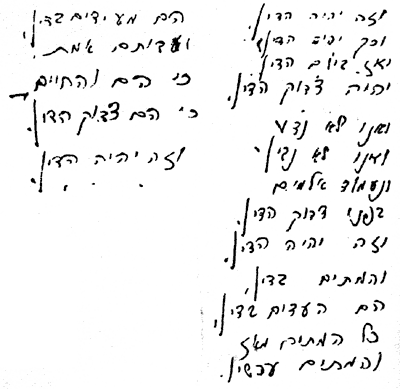 וזה יהיה הדין.
וכך הדין
ואז ביום הדין
יהיה צדוק הדין.
ואנו לא נדע
ואנו לא נדין.
ונעמוד אלמים
בפני צדוק הדין.
וזה יהיה הדין.
והמתים בדין,
הם העדים בדין,
כל המתים מאז
והמתים עכשיו.
הם מעידים בדין,
ועדותם אמת.
כי הם והחיים
כי הם צדוק הדין.
וזה יהיה הדין.